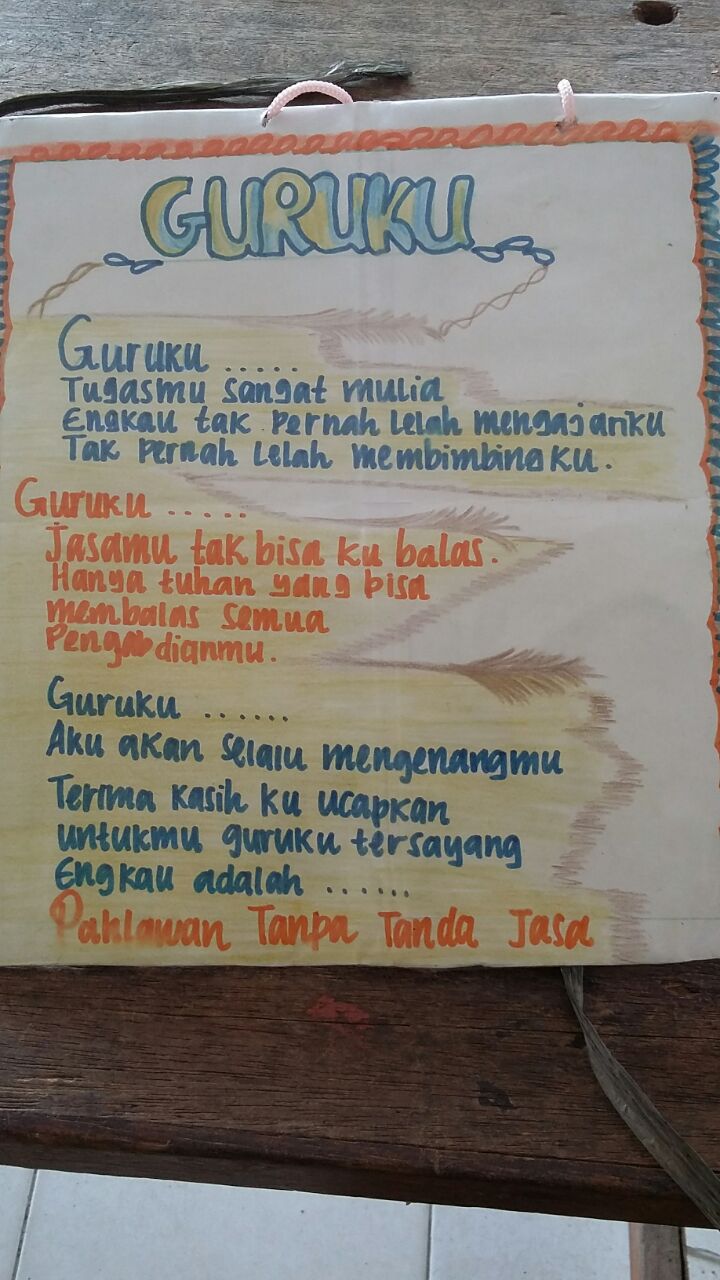 GURUKU
Guruku .....
Tugasmu sangat mulia
Engkau tak pernah lelah mengajariku
Tak pernah lelah membimbingku.
Guruku .....
Jasamu tak bisa ku balas.
Hanya tuhan yang bisa
membalas semua
Pengabdianmu.
Guruku .......
Aku akan selalu mengenangmu
Terima kasih ku ucapkan
untukmu guruku tersayang
Engkau adalah ......
Pahlawan Tanpa Tanda Jasa